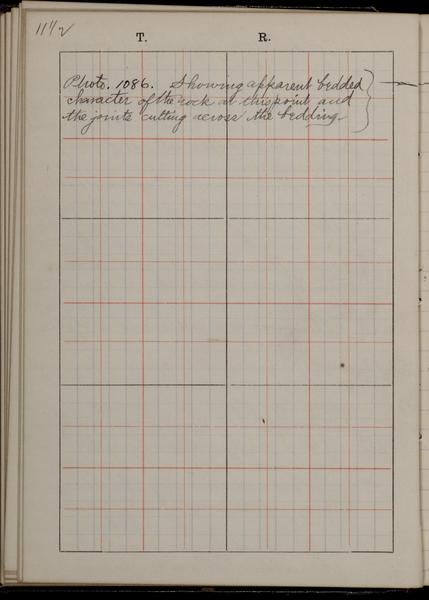 11 1/2
T. R.
Photo. 1086. Showing apparent bedded
character of the rock at this point and
the joints cutting across the bedding.